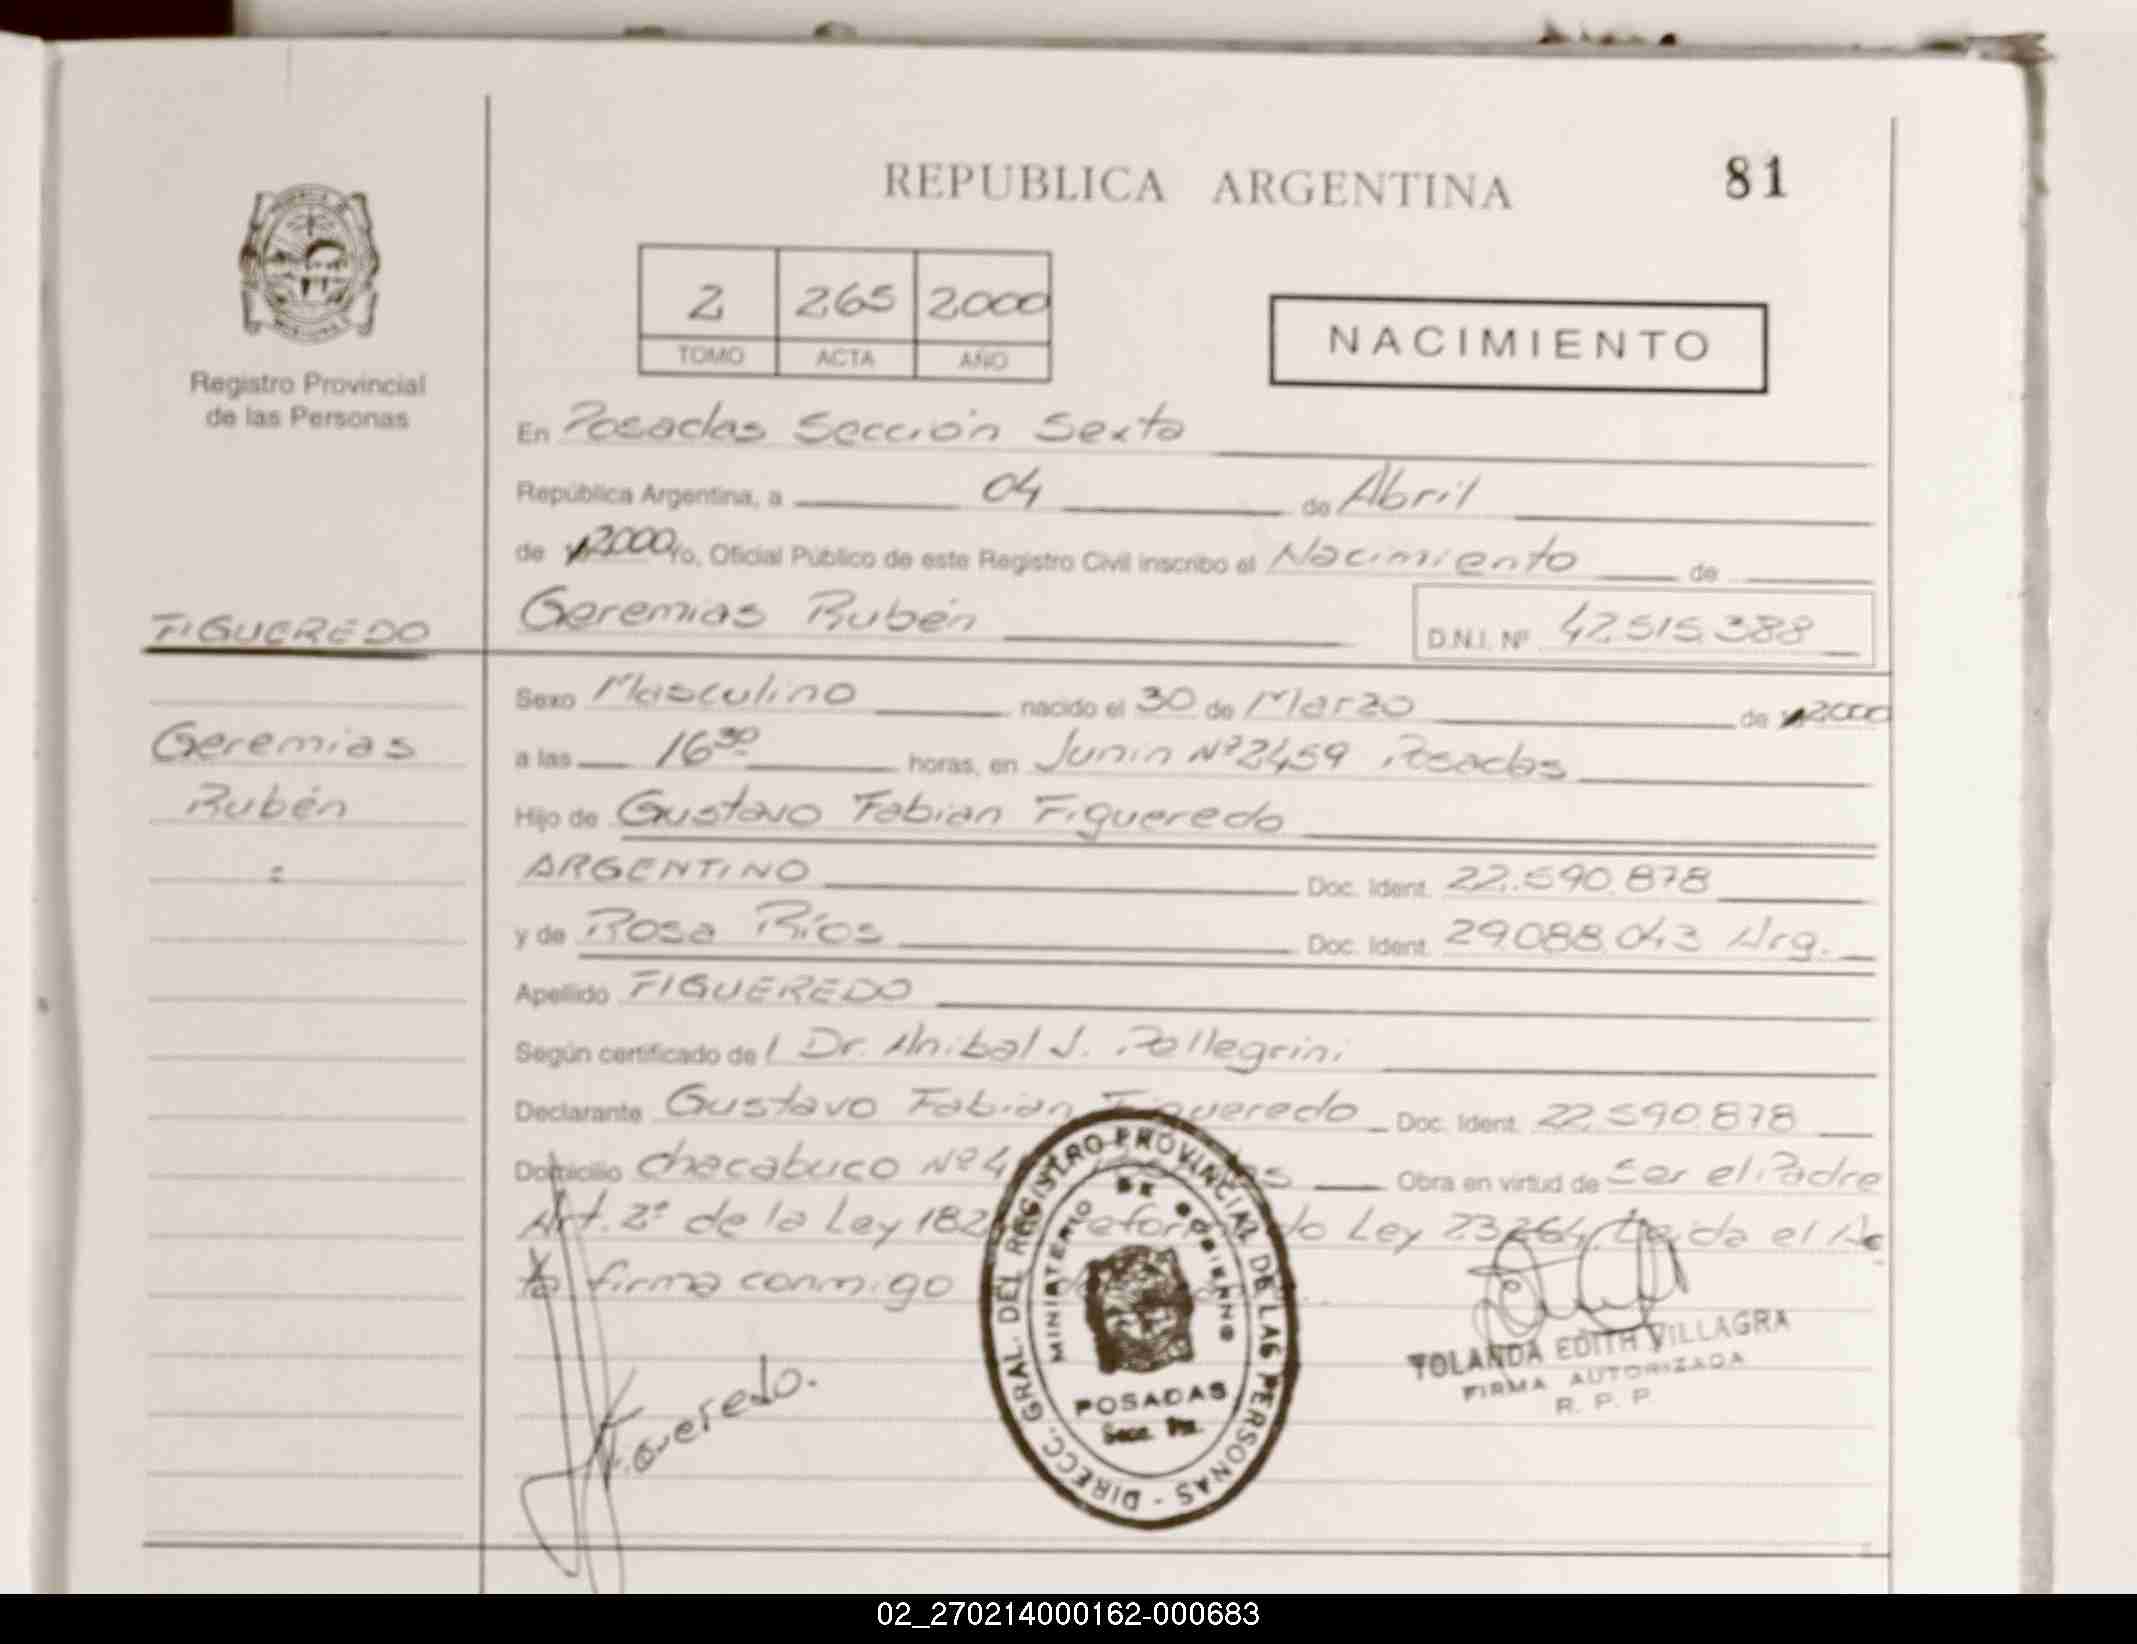 REPUBLICA ARGENTINA
81
2 265 2000
TOMO ACTA AÑO
NACIMIENTO
Registro Provincial
de las Personas
En Posadas Sección Sexta
República Argentina, a 04 de Abril
de 2000 Yo, Oficial Público de este Registro Civil inscribo el Nacimiento de
Geremias Rubén D.N.I. Nº 42.515.388
FIGUEREDO
Geremias
Rubén
Sexo Masculino nacido el 30 de Marzo de 2000
a las 16 30 horas, en Junin Nº 2459 Posadas
Hijo de Gustavo Fabian Figueredo
ARGENTINO Doc. Ident. 22.590.878
y de Rosa Ríos Doc. Ident. 29.088.043 Arg.
Apellido FIGUEREDO
Según certificado de l Dr. Anibal J. Pellegrini
Declarante Gustavo Fabian Figueredo Doc. Ident. 22.590.878
Domicilio Chacabuco Nº Obra en virtud de Ser el Padre
Art. 2º de la Ley Ley 23264 Leida el Ac
ta firma conmigo
DIRECC. GRAL. DEL REGISTRO PROVINCIAL DE LAS PERSONAS -
MINISTERIO DE GOBIERNO
POSADAS
Figueredo.
YOLANDA EDITH VILLAGRA
FIRMA AUTORIZADA
R. P. P.
02_270214000162-000683